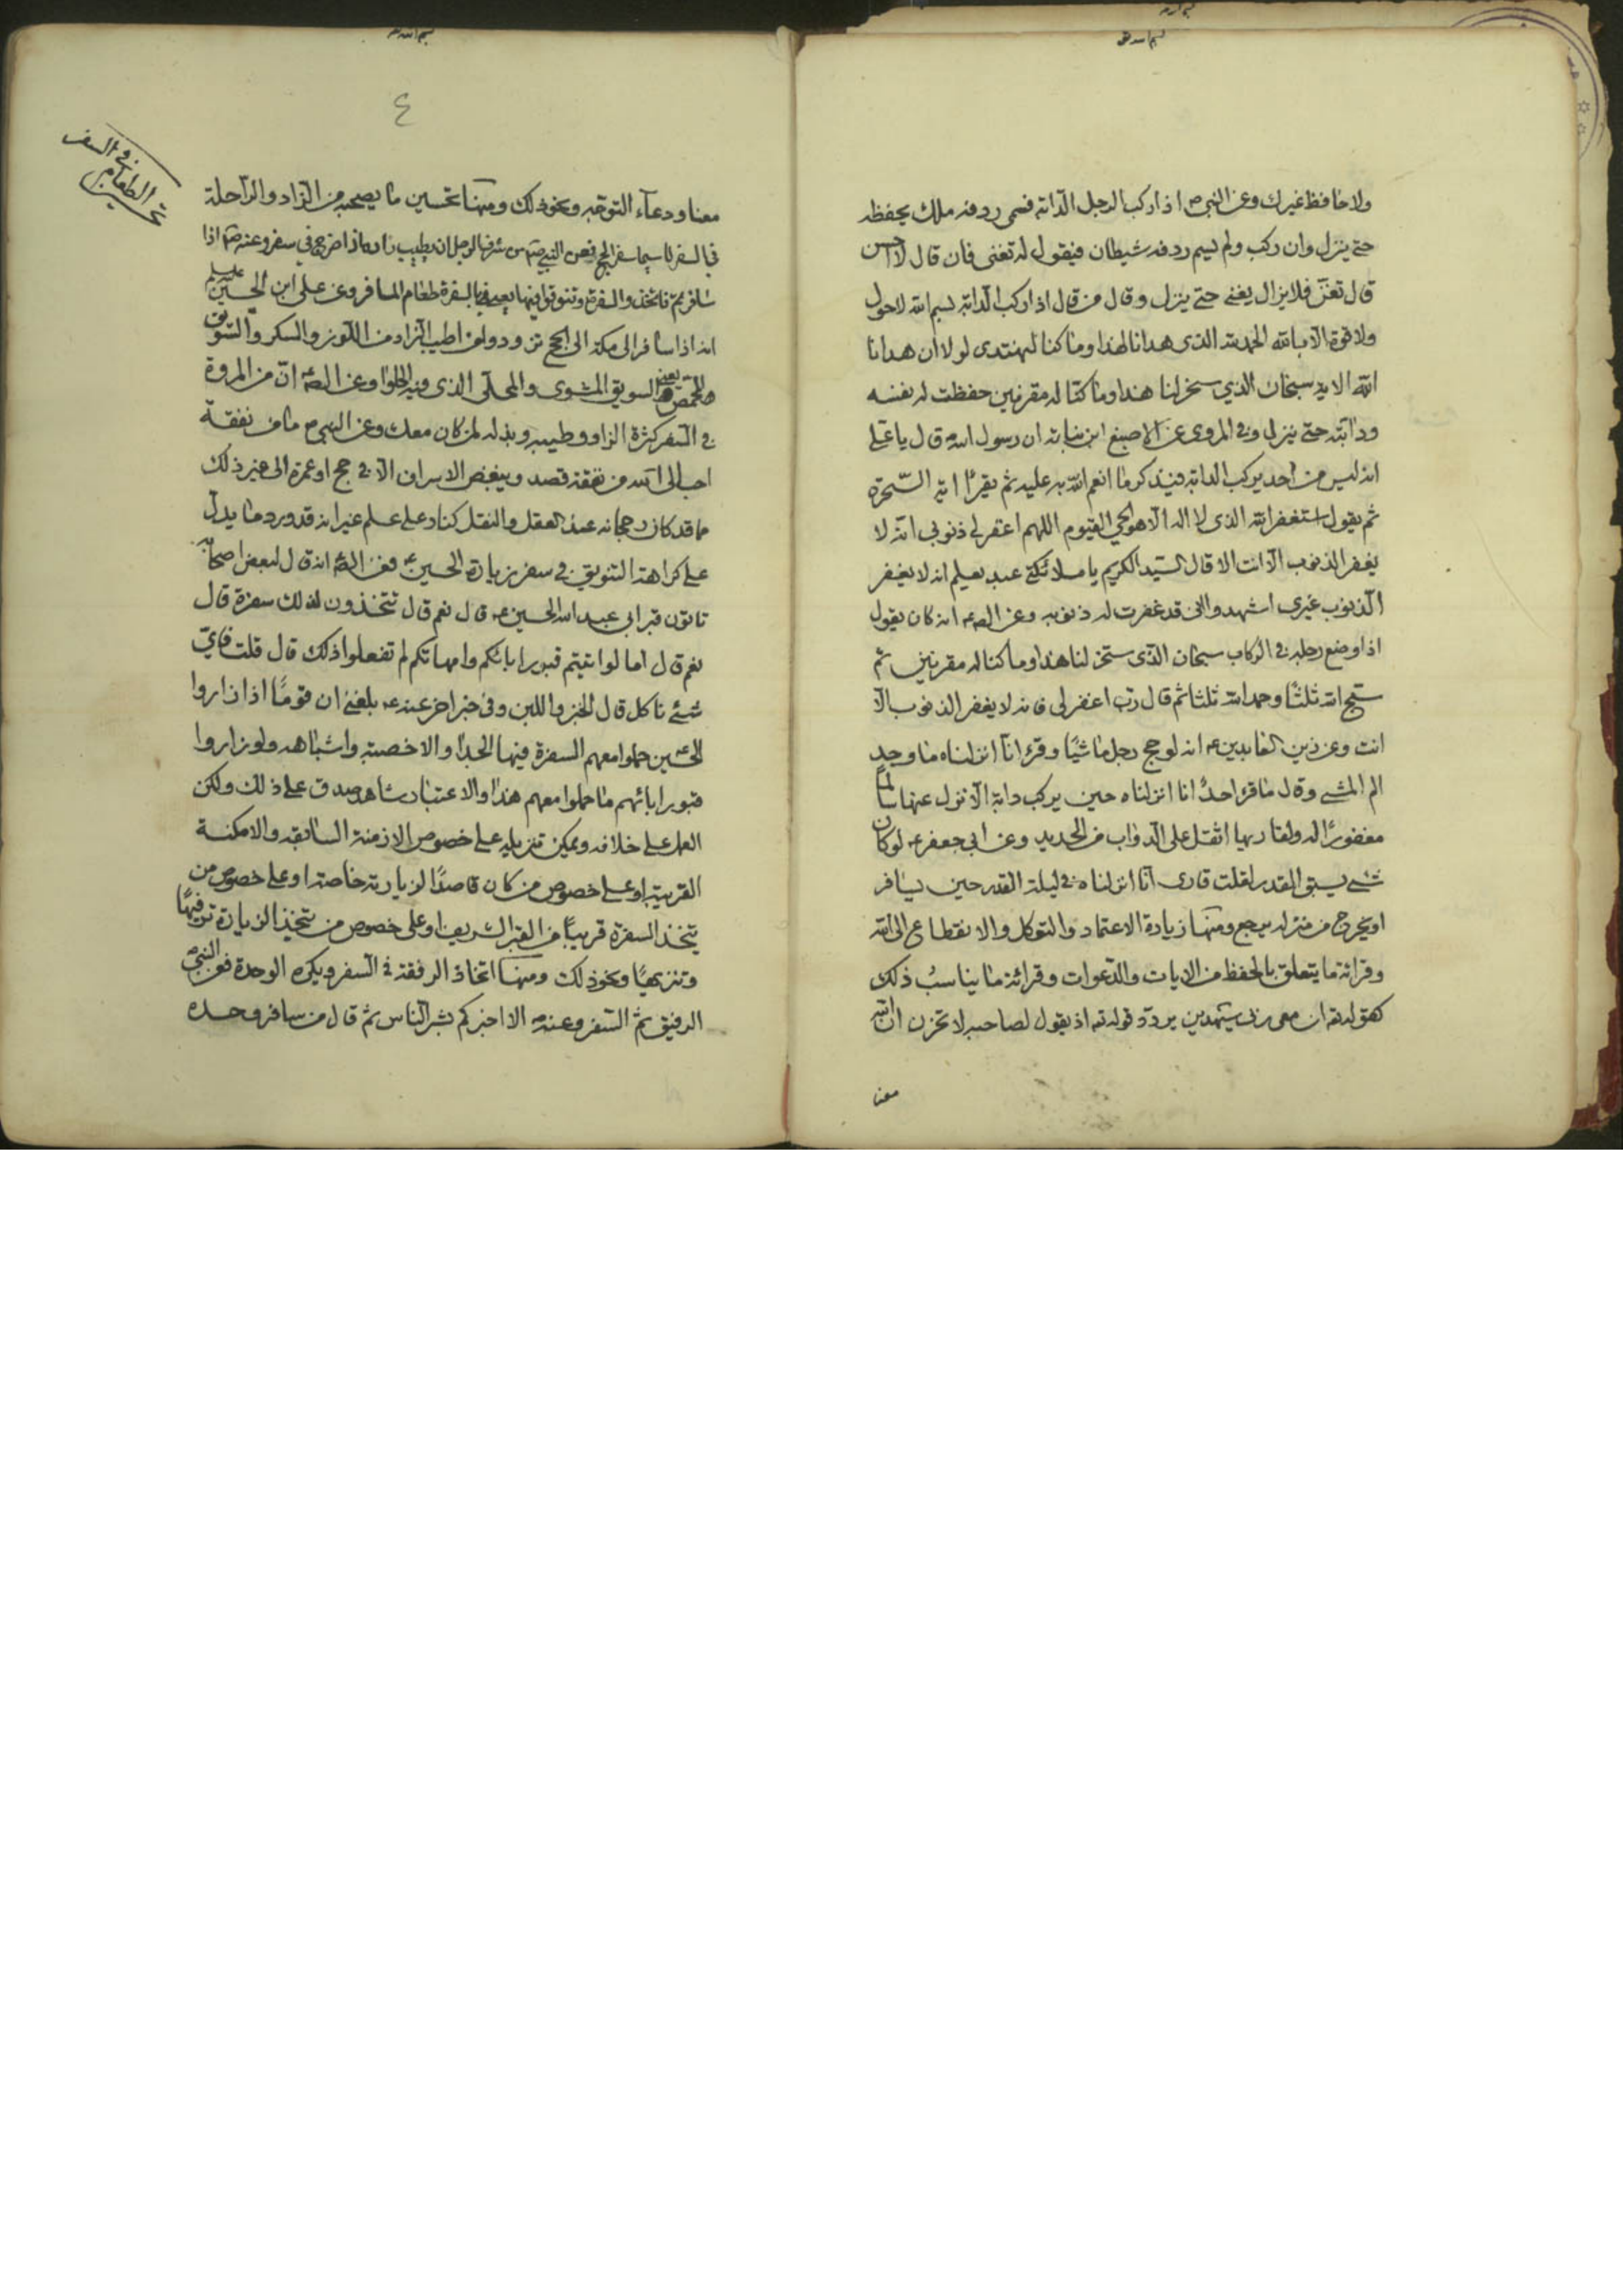 بسم الله
ولا حافظ غيرك وعن النبي ص اذا ركب الرجل الدابة فسمى ردفه ملك يحفظه
حتى ينزل وان ركب ولم يسم ردفه شيطان فيقول له تغنى فان قال لا احسن
قال تمنّ فلا يزال يغنى حتى ينزل وقال من قال اذا ركب الدابة بسم الله لا حول
ولا قوة الا بالله الحمد لله الذى هدانا لهذا وما كنا لنهتدى لولا ان هدانا
الله الاية سبحان الذي سخر لنا هذا وما كنّا له مقرنين حفظت له نفسه
ودابته حتى ينزل وفي المروى عن الاصبغ ابن نباتة ان رسول الله قال يا على
انه ليس من احد يركب الدابة فيذكر ما انعم الله به عليه ثم يقرأ اية السّخرة
ثم يقول استغفر الله الذى لا اله الا هو الحي القيوم اللهم اغفر لي ذنوبي انه لا
يغفر الذنوب الا انت الا قال السيد الكريم يا ملائكتى عبدى يعلم انه لا يغفر
الذنوب غيرى اشهدوا انى قد غفرت له ذنوبه وعن الص ع انه كان يقول
اذا وضع رجله في الركاب سبحان الذى سخر لنا هذا وما كنا له مقرنين ثم
سبح الله ثلثًا وحمد الله ثلثا ثم قال رب اغفر لى فانه لا يغفر الذنوب الا
انت وعن زين العابدين ع انه لو حج رجل ماشيًا وقرء انا انزلناه ما وجد
الم المشى وقال ما قرء احدٌ انا انزلناه حين يركب دابة الا نزل عنها سالمًا
مغفورًا له ولقاريها اثقل على الدواب من الحديد وعن ابى جعفر ع لو كان
شئ يسبق القدر لقلت قارى انا انزلناه في ليلة القدر حين يسافر
او يخرج من منزله يرجع ومنها زيادة الاعتماد والتوكل والانقطاع الى الله
وقرائة ما يتعلق بالحفظ من الايات والدّعوات وقرائة ما يناسبُ ذلك
كقوله تع ان معى ربى سيهدين وقوله تع اذ يقول لصاحبه لا تحزن ان الله
معنا
بسم الله
٤
تحسين الطعام في السفر
معنا ودعآء التوجه ونحو ذلك ومنها تحسين ما يصحبه من الزاد والراحلة
في السفر لا سيما سفر الحج فعن النبي ص من شرف الرجل ان يطيب زاده اذا خرج في سفر وعنه ص اذا
سافرتم فاتخذوا السفرة وتنوقوا فيها يعنى بالسفرة طعام المسافر وعن على ابن الحسين عليه السلم
انه اذا سافر الى مكة الى الحج تزود من اطيب الزاد من اللوز والسكر والسويق
المحمص يعنى السويق المشوى والمحلّى الذى فيه الحلوا وعن الص ع انّ من المروة
في السفر كثرة الزاد وطيبه وبذله لمن كان معك وعن النبي ص ما من نفقة
احب الى الله من نفقة قصد ويبغض الاسراف الا في حج او عمرة الى غير ذلك
مما قد كان رجحانه عند العقل والنقل كنار على علم غير انه قد ورد ما يدل
على كراهة التنويق في سفر زيارة الحسين ع فعن الص ع انه قال لبعض اصحابه
تاتون قبر ابى عبد الله الحسين ع قال نعم قال تتخذون لذلك سفرة قال
نعم قال اما لو اتيتم قبور ابائكم وامهاتكم لم تفعلوا ذلك قال قلت فاىّ
شئ ناكل قال الخبز واللبن وفى خبر اخر عنه ع بلغنى ان قومًا اذا زاروا
الحسين حملوا معهم السفرة فيها الجداء والاخصبة واشباهه ولو زاروا
قبور ابائهم ما حملوا معهم هذا والاعتبار شاهد صدق على ذلك ولكن
العمل على خلافه ويمكن تنزيله على خصوص الازمنة السابقه والامكنة
القريبة او على خصوص من كان قاصدًا لزيارته خاصة او على خصوص من
يتخذ السفرة قريبًا من القبر الشريف او على خصوص من يتخذ الزيارة ترفيهًا
وتنزيهًا ونحو ذلك ومنها اتخاذ الرفقة في السفر ويكره الوحدة فعن النبي ص
الرفيق ثم السّفر وعنه ص الا اخبركم بشر الناس ثم قال من سافر وحده